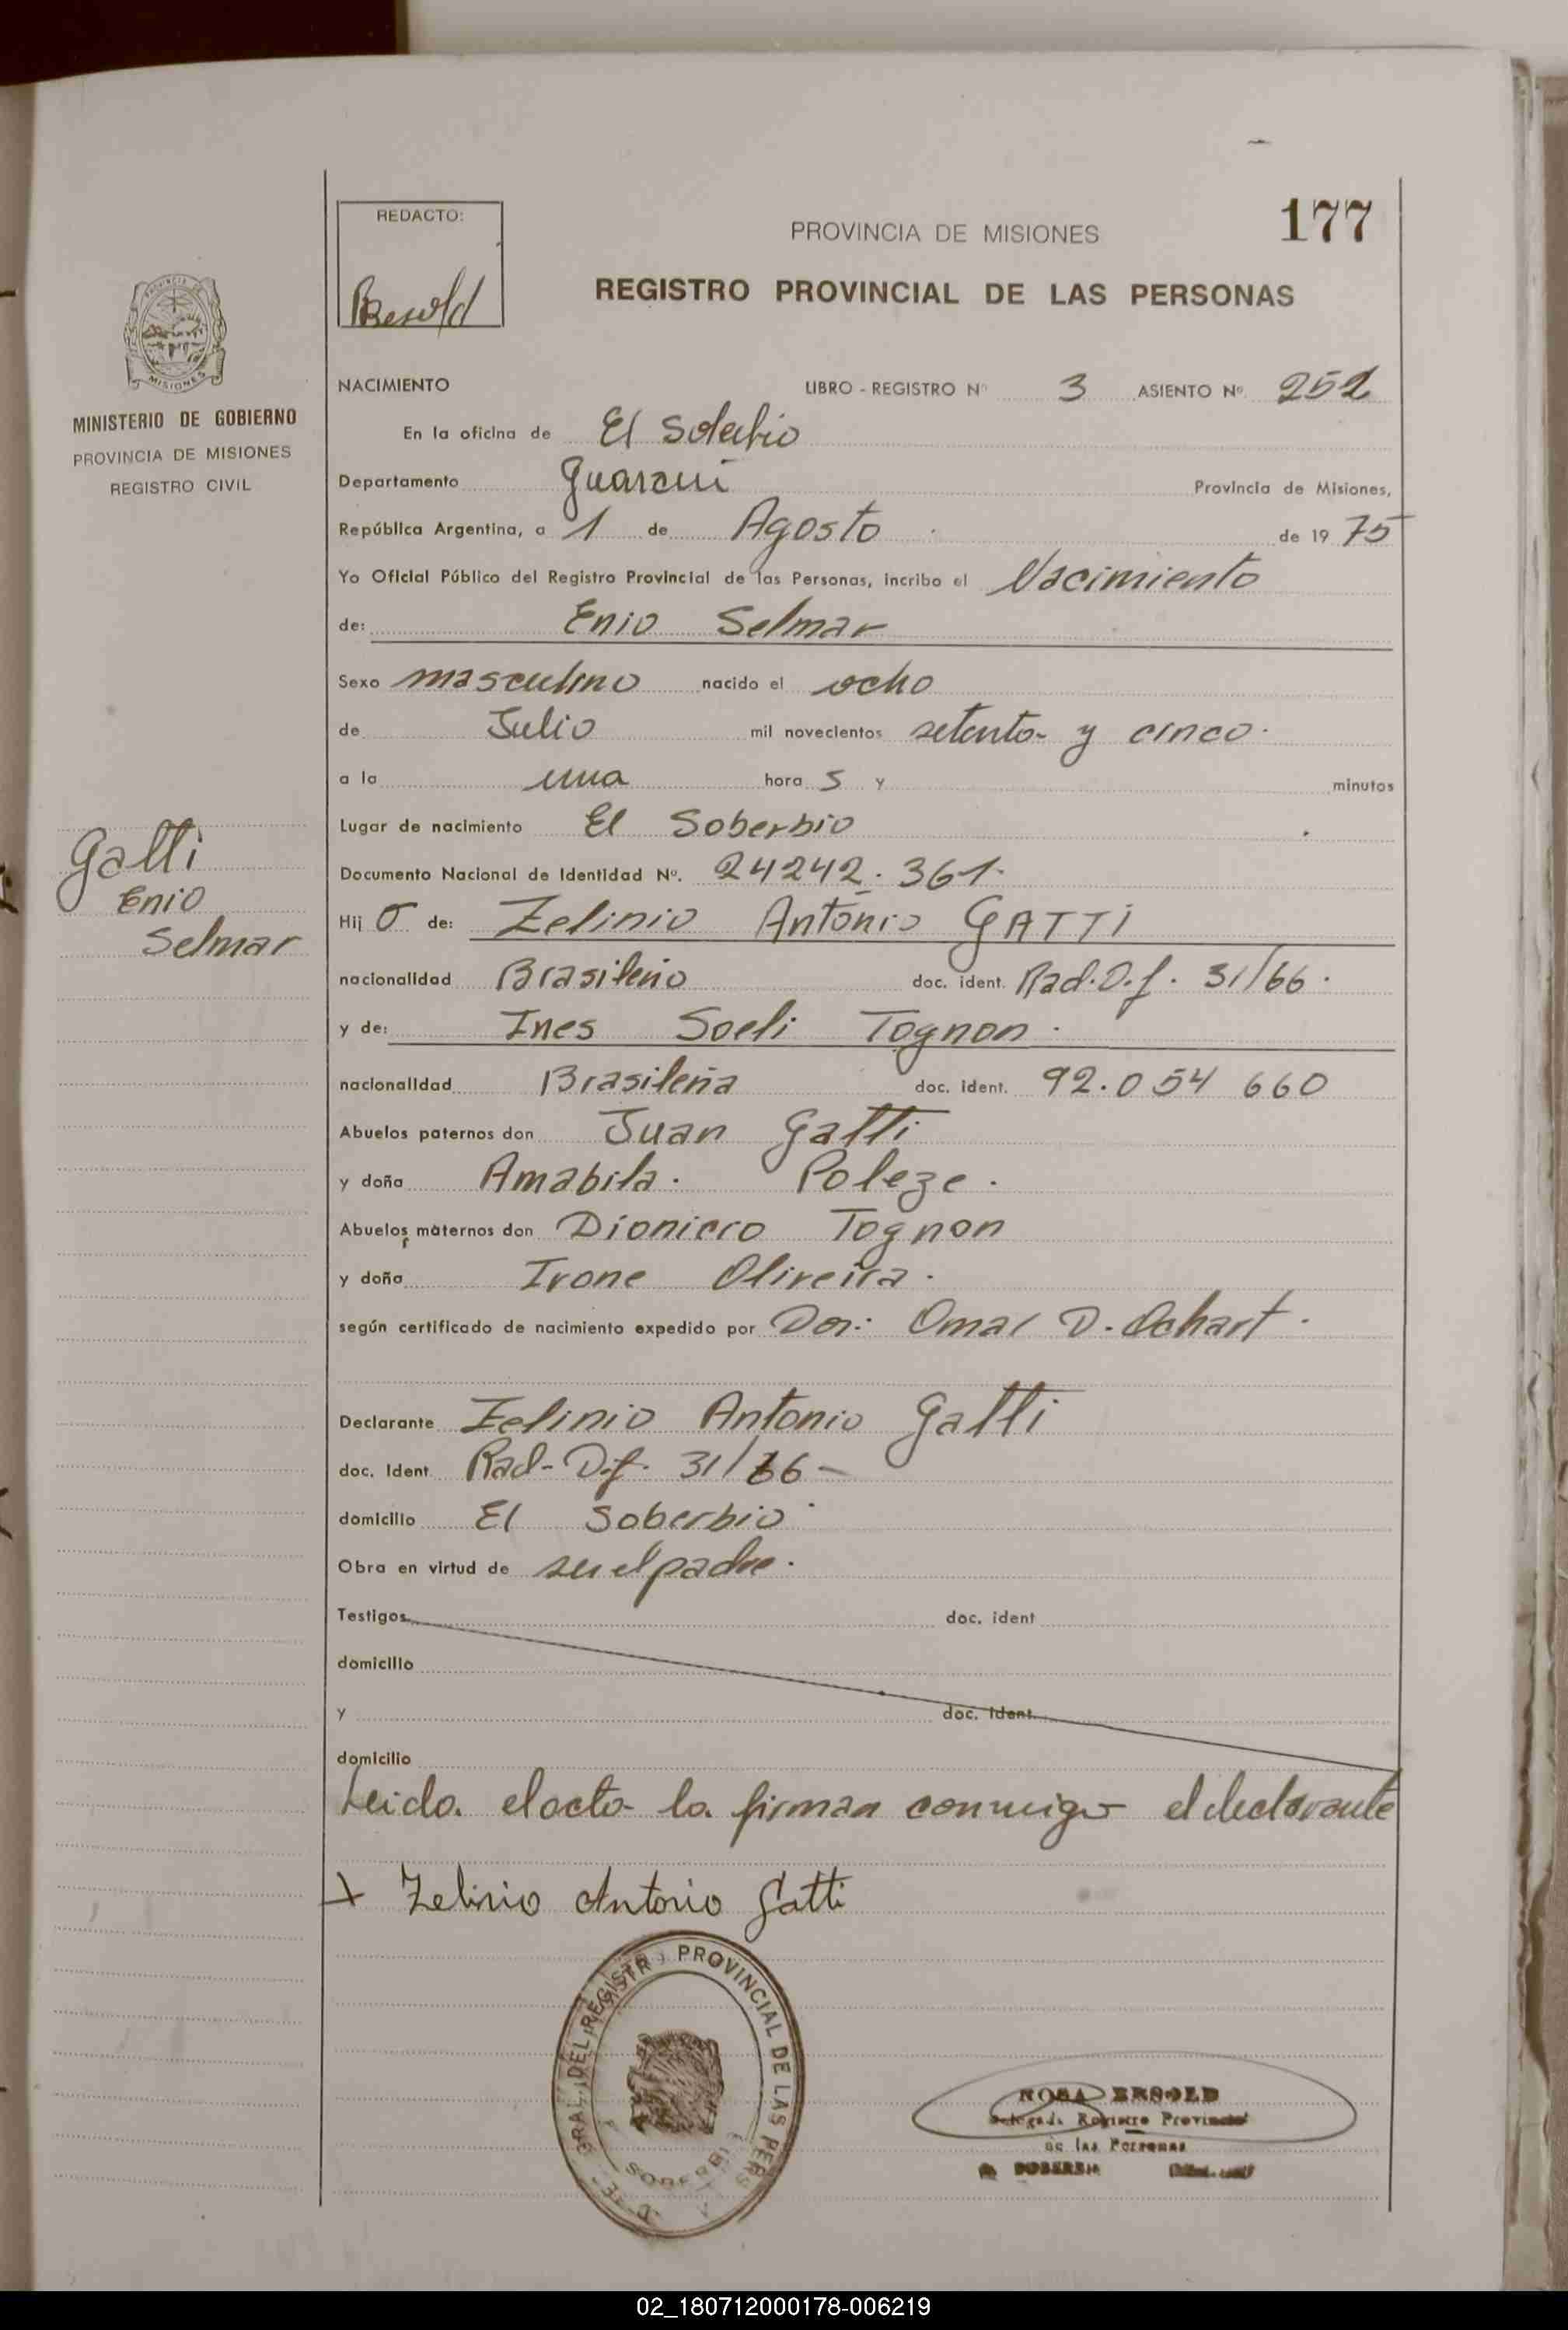 177
REDACTO:
Besold
PROVINCIA DE MISIONES
REGISTRO PROVINCIAL DE LAS PERSONAS
MISIONES
MINISTERIO DE GOBIERNO
PROVINCIA DE MISIONES
REGISTRO CIVIL
NACIMIENTO LIBRO - REGISTRO Nº 3 ASIENTO Nº 252
En la oficina de El Soberbio
Departamento Guaraní Provincia de Misiones,
República Argentina, a 1 de Agosto de 19 75
Yo Oficial Público del Registro Provincial de las Personas, incribo el Nacimiento
de: Enio Selmar
Sexo masculino nacido el ocho
de Julio mil novecientos setenta y cinco.
a la una hora s y minutos
Lugar de nacimiento El Soberbio
Gatti
Enio
Selmar
Documento Nacional de Identidad Nº. 24242.361.
Hij o de: Zelinio Antonio GATTI
nacionalidad Brasileño doc. ident. Rad.D.f. 31/66.
y de: Ines Soeli Tognon.
nacionalidad Brasileña doc. ident. 92.054 660
Abuelos paternos don Juan Gatti
y doña Amabila. Poleze.
Abuelos maternos don Tognon
y doña Irone Oliveira.
según certificado de nacimiento expedido por Omar D. Ochart.
Declarante Zelinio Antonio Gatti
doc. Ident Rad-D.f. 31/66-
domicilio El Soberbio
Obra en virtud de ser el padre.
Testigos doc. ident
domicilio
y doc. Ident.
domicilio
Leida el acta la firman conmigo el declarante
Zelinio Antonio Gatti
GRAL. DEL REGISTRO PROVINCIAL DE LAS PERS
SOBERBIO
ROSA BESOLD
Delegada Registro Provincial
de las Personas
SOBERBIO
02_180712000178-006219